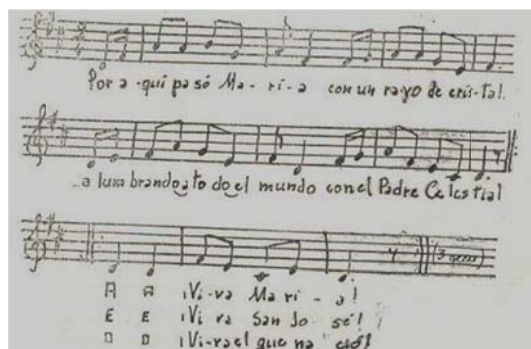 Por a-quí pa só Ma-rí-a con un rayo de cris-tal.
a lum brando a to do el mundo con el Padre Ce les tial
A A ¡Vi-va Ma rí-a!
E E ¡Vi va San Jo sé!
¡Viva el que na ció!
(3 veces)